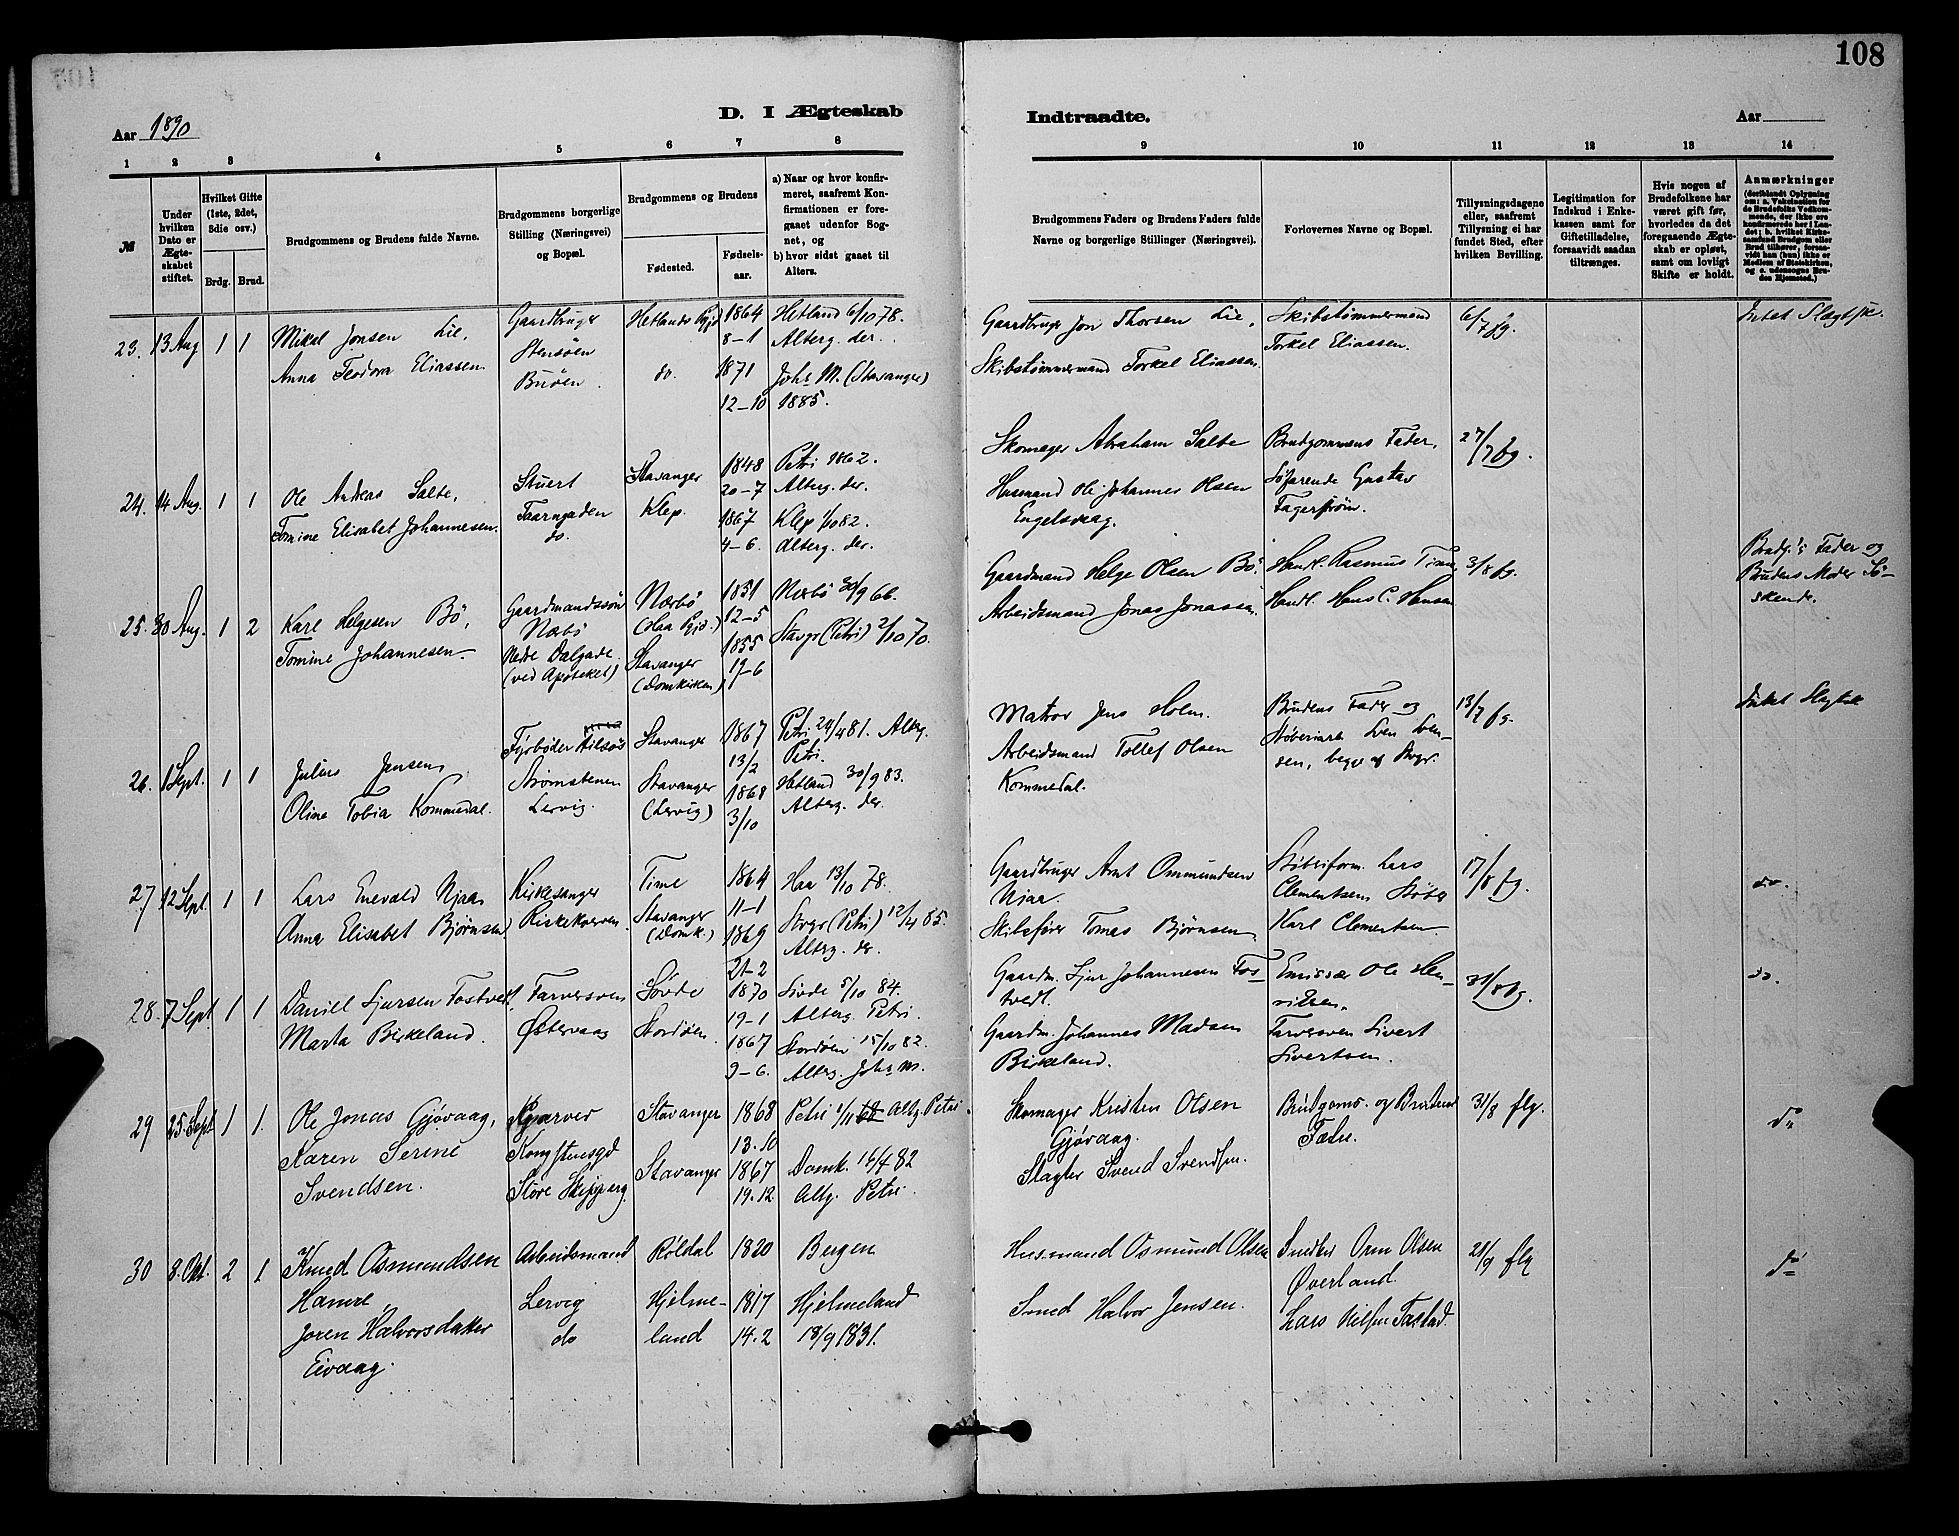 108
D. I Ægteskab
Indtraadte.
Aar 1890
Aar
1 2 3 4 5 6 7 8
9 10 11 12 13 14
№
Under hvilken Dato er Ægteskabet stiftet.
Hvilket Gifte (1ste, 2det, 3die osv.)
Brdg. Brud.
Brudgommens og Brudens fulde Navne.
Brudgommens borgerlige Stilling (Næringsvei) og Bopæl.
Brudgommens og Brudens
Fødested.
Fødselsaar.
a) Naar og hvor konfirmeret, saafremt Konfirmationen er foregaaet udenfor Sognet, og
b) hvor sidst gaaet til Alters.
Brudgommens Faders og Brudens Faders fulde Navne og borgerlige Stillinger (Næringsvei).
Forlovernes Navne og Bopæl.
Tillysningsdagene eller, saafremt Tillysning ei har fundet Sted, efter hvilken Bevilling.
Legitimation for Indskud i Enkekassen samt for Giftetilladelse, forsaavidt saadan tiltrænges.
Hvis nogen af Brudefolkene har været gift før, hvorledes da det foregaaende Ægteskab er opløst, samt om lovligt Skifte er holdt.
Anmærkninger
23. 13 Aug 1 1
Mikal Jonsen Lie,
Anna Teodora Eliassen
Gaardbruger
Stensøen
Buøen.
Hetlands Pgjd
do.
1864
8–1
1871
12–10
Hetland 6/10 78.
Alterg. der.
Johs M. (Stavanger)
1885.
Gaardbruger Jon Thorsen Lie,
Skibstømmermand Torkel Eliassen
Skibstømmermand
Torkel Eliassen.
6/7 fg.
Intet Slagtsk.
24. 14 Aug. 1 1
Ole Andreas Salte,
Tomine Elisabet Johannesen.
Stuert
Taarngaden
do.
Stavanger
Klep.
1848
20–7
1867
4–6.
Petri 1862.
Alterg. der.
Klep 1/10 82.
Alterg. der.
Skomager Abraham Salte
Husmand Ole Johannes Olsen
Engelsvaag.
Brudgommens Fader,
Søfarende Gustav
Fagerstrøm.
27/7 fg.
25. 30 Aug. 1 2
Karl Helgesen Bö,
Tomine Johannesen
Gaardmandssøn
Nærbø
Nedre Dalgade
(ved Apoteket)
Nærbö
(Haa Pgjd.)
Stavanger
(Domkirken)
1851
12–5
1855
17–6
Nærbö 30/9 66.
Stavgr (Petri) 2/10 70.
Gaardmand Helge Olsen Bö.
Arbeidsmand Jonas Jonassen.
Handl. Rasmus Time
Handl. Hans C. Hansen
3/8 fg.
Brudg.'s Fader og
Brudens Moder Sö-
skende.
26. 1 Sept. 1 1
Julius Jensen,
Oline Tobia Kommedal.
Fyrbøder
Strømstenen
Lervig.
Stavanger
Stavanger
(Lervig)
1867
13/2
1868
3/10
Petri 24/4 81. Alterg.
Petri.
Hetland 30/9 83.
Alterg. der.
Matros Jens Holm.
Arbeidsmand Tollef Olsen
Kommedal.
Brudens Fader og
Støberiarb. Sven Sven-
sen, begge af Stvgr.
13/7 fg.
Intet Slagtsk
27 12 Sept. 1 1
Lars Enevald Njaa,
Anna Elisabet Bjørnsen
Kirkesanger
Time
Stavanger
(Domk.)
1864
11–1
1869
21–2
Haa 13/10 78.
Stvgr (Petri) 12/4 85.
Alterg. der.
Gaardbruger Arnt Ommundsen
Njaa.
Skibsfører Tomas Bjørnsen
Støberiform. Lars
Clementsen Støber
Karl Clementsen
17/8 fg.
do.
28. 7 Sept 1 1
Daniel Sjursen Tostvedt
Marta Birkeland.
Farversven
Østervaag
Søvde
Stordøen.
1870
19–1
1867
9–6.
Søvde 5/10 84.
Alterg. Petri.
Stordøen 15/10 82.
Alterg. Johs M.
Gaardm. Sjur Johannesen Tos-
tvedt.
Gaardm. Johannes Madsen
Birkeland.
Emissær Ole Hen-
riksen.
Farversven Sivert
Sivertsen.
31/8 fg.
do
29 25. Sept 1 1.
Ole Jonas Gjövaag,
Karen Serine
Svendsen.
Garver
Kongstensgd
Store Skipperg.
Stavanger
Stavanger
1868
13.10
1867
19.12
Petri Altg. Petri.
Domk. 16/4 82
Altg. Petri.
Skomager Kristen Olsen
Gjøvaag.
Slagter Svend Svendsen.
Brudgoms. og Brudens
Fædre.
31/8 flg.
do
30 8. Okt. 2 1
Knud Osmundsen
Hamre,
Joren Halvorsdatter
Eivaag.
Arbeidsmand
Lervig
do
Röldal
Hjelme-
land
1820
1817
14.2
Bergen
Hjelmeland
18/9 1831.
Husmand Osmund Olsen
Smed Halvor Jensen.
Snedker Orm Olsen
Øverland.
Lars Nilsen Tastad.
21/9 flg
do